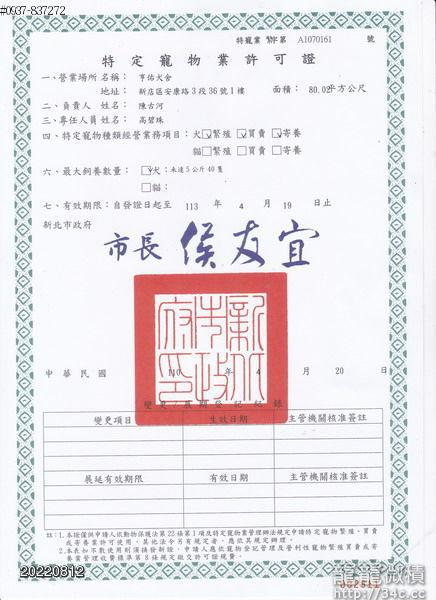 #0937-837272
特寵業 繁字第 A1070161 號
特定寵物業許可證
一、營業場所名稱： 亨佑犬舍
地址： 新店區安康路3段36號1樓 面積： 80.02平方公尺
二、負責人 姓名： 陳古河
三、專任人員姓名： 高碧珠
四、特定寵物種類經營業務項目：犬☑繁殖 ☑買賣 ☑寄養
貓□繁殖 □買賣 □寄養
六、最大飼養數量： ☑犬：未達5公斤40隻
□貓：
七、有效期限：自發證日起至 113 年 4 月 19 日止
新北市政府
市長 侯友宜
新北市政府印
中華民國 110 年 4 月 20 日
變更/展期登記紀錄
變更項目 生效日期 主管機關核准簽註
展延有效期限 有效日期 主管機關核准簽註
註：1.本證僅與申請人依動物保護法第22條第1項及特定寵物業管理辦法規定申請特定寵物繁殖、買賣
或寄養業許可使用，其他法令另有規定者，應依其規定辦理。
2.本表如不敷使用則須換發新證，申請人應依寵物登記管理及營利性寵物繁殖買賣或寄
養業管理收費標準第8條規定繳交許可證規費。
20220812
002511
龍龍微積
http://34c.cc